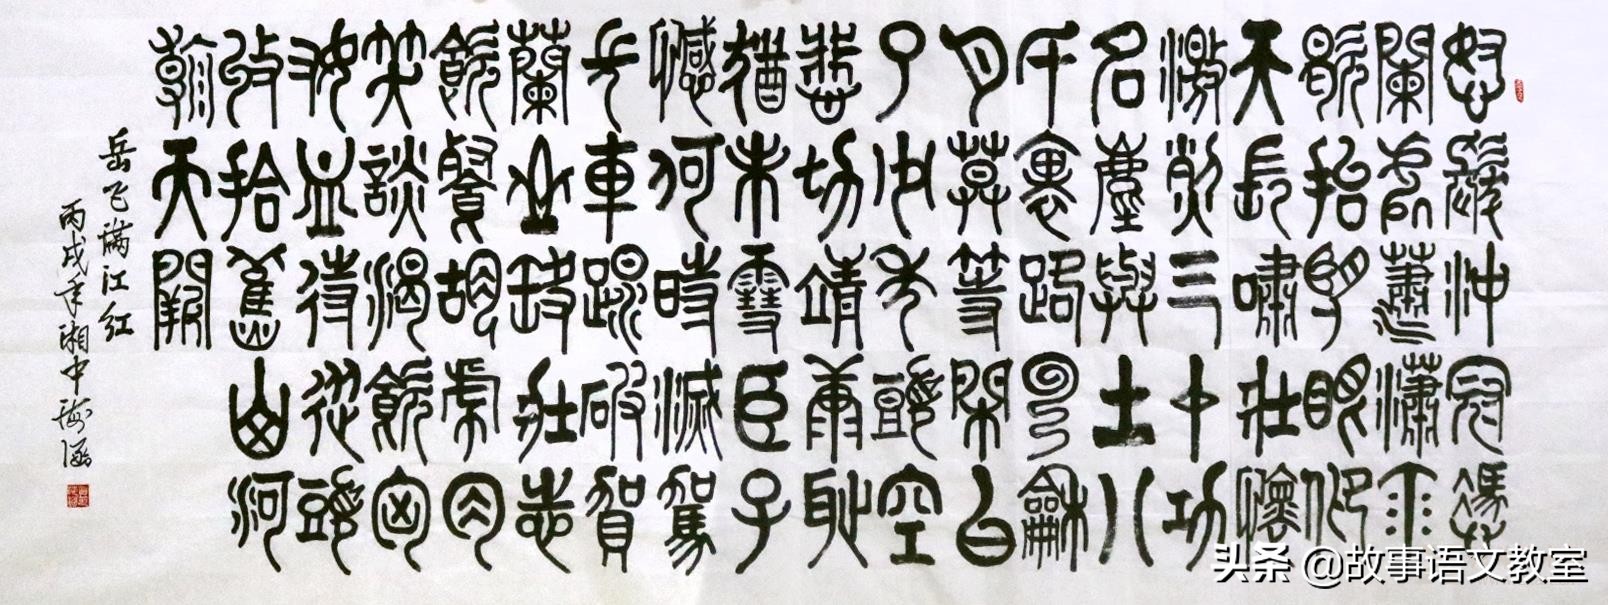 怒髮沖冠憑
闌處蕭瀟雨
歇抬望眼仰
天長嘯壯懷
激烈三十功
名塵與土八
千裏路雲和
月莫等閑白
了少年頭空
悲切靖康恥
猶未雪臣子
憾何時滅駕
長車踏破賀
蘭山缺壯志
飢餐胡虜肉
笑談渴飲匈
奴血待從頭
收拾舊山河
朝天闕
岳飞滿江红
丙戌年湘中
头条 @故事语文教室